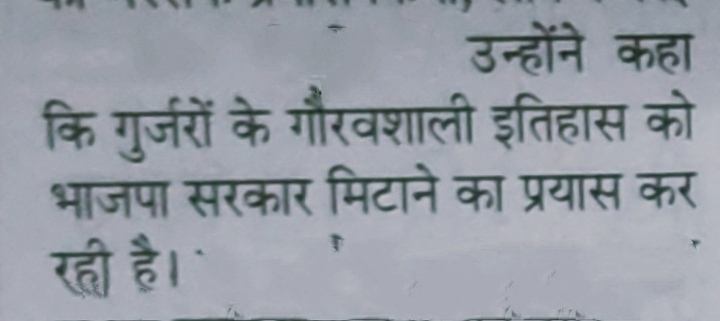 उन्होंने कहा
कि गुर्जरों के गौरवशाली इतिहास को
भाजपा सरकार मिटाने का प्रयास कर
रही है।